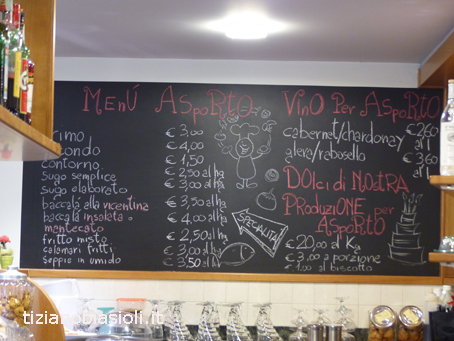 MENÚ ASPORTO
primo € 3,00
secondo € 4,00
contorno € 1,50
sugo semplice € 2,50 all'hg
sugo elaborato € 3,00 all'hg
baccalà alla vicentina € 3,50 all'hg
baccalà insalata o mantecato € 4,00 all'hg
fritto misto € 2,50 all'hg
calamari fritti € 3,00 all'hg
seppie in umido € 3,50 all'hg
SPECIALITÀ
VINO PER ASPORTO
cabernet/chardonay € 2,60 al l
glera/rabosello € 3,60 al l
DOLCI di NOSTRA
PRODUZIONE per
ASPORTO
€ 20,00 al Kg
€ 3,00 a porzione
€ 1,00 al biscotto
tizianobiasioli.it